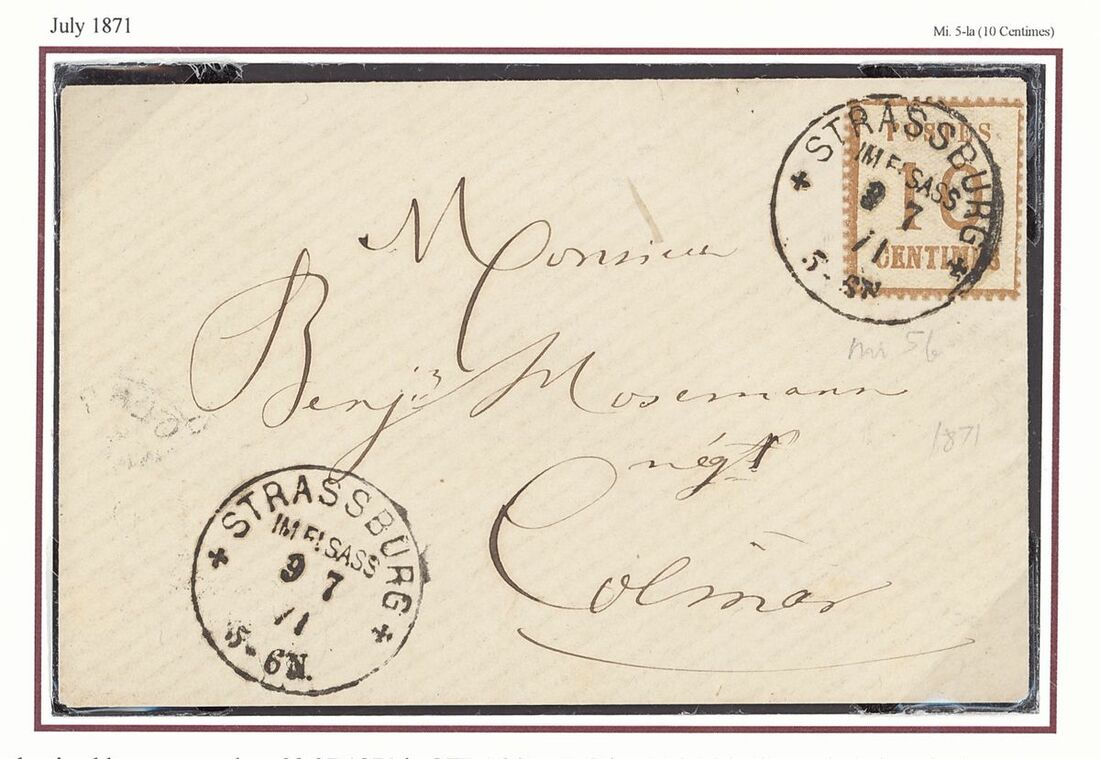 July 1871
Mi. 5-Ia (10 Centimes)
STRASSBURG
IM ELSASS
9 7
71
5-6N.
POSTES
10
CENTIMES
Monsieur
Benj.in Mosemann
négt
Colmar
Mi 5b
1871
STRASSBURG
IM ELSASS
9 7
71
5-6N.